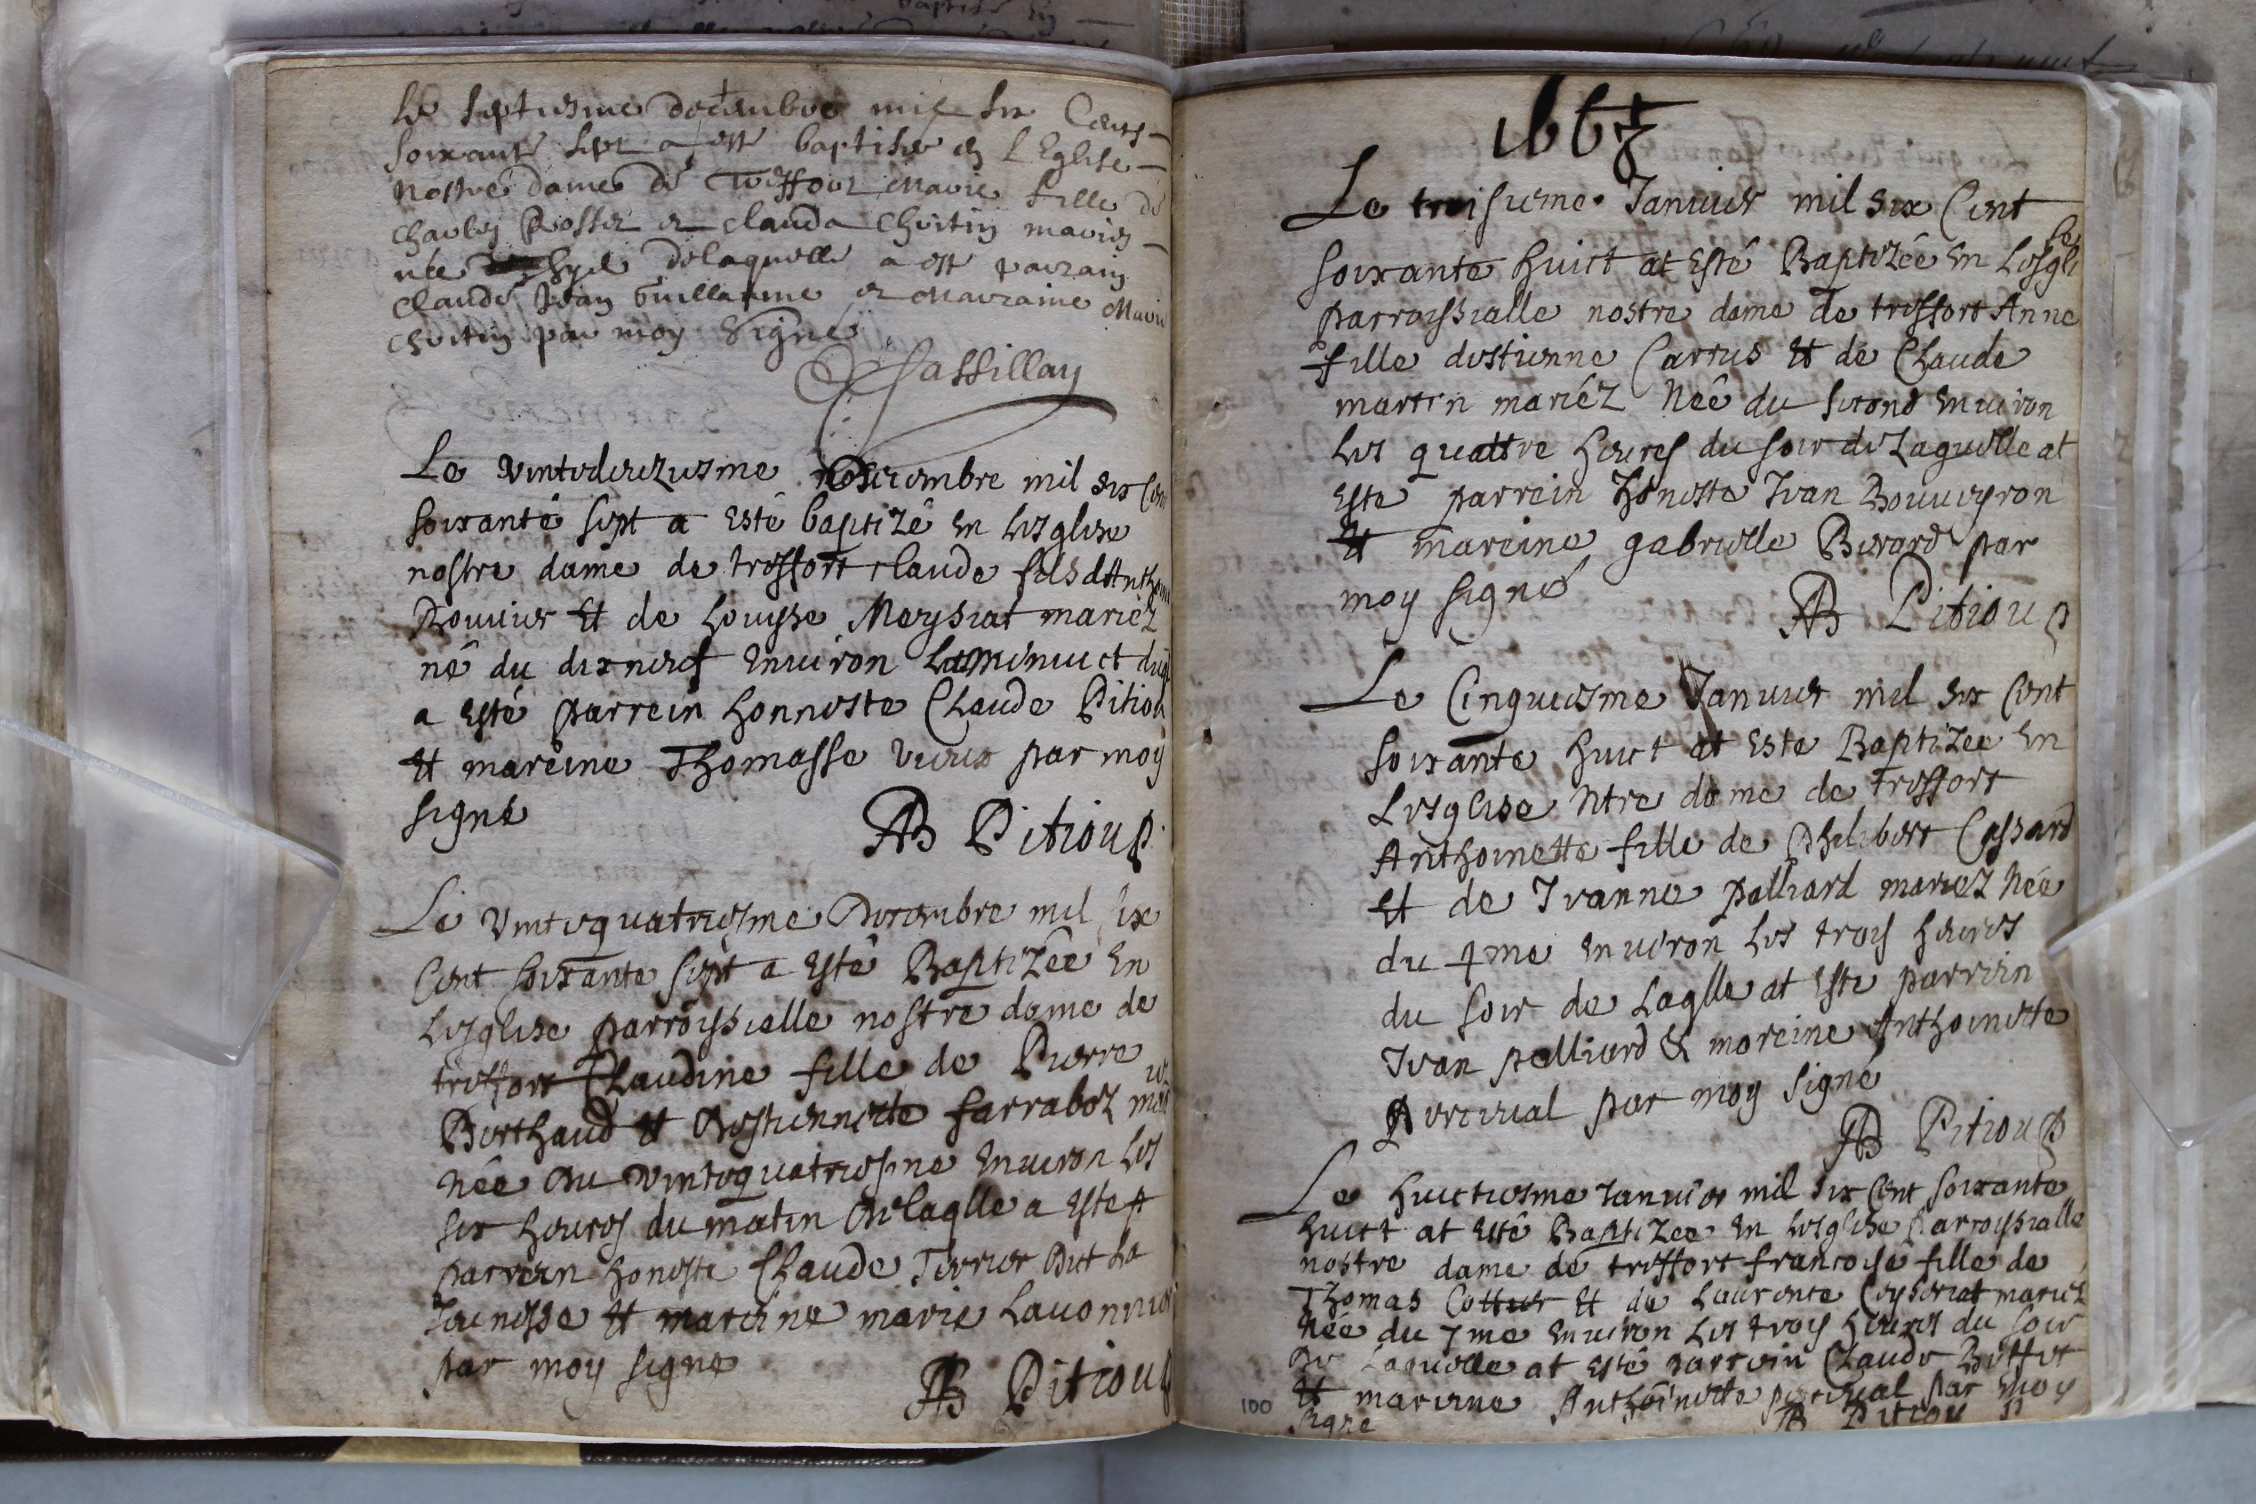 Le septiesme decembre mil six Cents
soixante sept a este baptisée en L Eglise
nostre dame de treffort Marie fille de
Charles Rosset et clauda Chritin mariés
née hyer delaquelle a este parrain
Claude Jean Guillaume et Marraine Marie
Chritin par moy Signé
Le vintedeuziesme decembre mil six Cent
soixante sept a esté baptizé en Lesglise
nostre dame de treffort claude fils d'Anthoine
Bouvier Et de Louysse Meysiat mariéz
né du dixneuf environ La minuict duql
a esté parrein honneste Claude Pitiou
Et mareine Thomasse par moy
signé
AB Pitioup
Le vintequatriesme Decembre mil six
Cent soixante sept a esté Baptizée En
Lesglise parroissialle nostre dame de
treffort Claudine fille de Pierre
Berthaud Et Destiennette farraboz
Née du vintequatriesme Environ Les
six heures du matin de laqlle a este
parrein honeste Claude Terrier Dict La
Jeunesse Et mareine marie
par moy signé
AB Pitioup
1668
Le troisiesme Janvier mil six Cent
soixante huict at Esté Baptizée En Lesglise
parroissialle nostre dame de treffort Anne
fille destienne Carrus Et de Claude
martin mariéz Née du second Environ
Les quattre heures du soir de Laquelle at
Este parrein honeste Jean Bouveyron
Et mareine gabrielle Berard par
moy signé
AB Pitioup
Le Cinquiesme Janvier mil six Cent
soixante huict at Este Baptizee En
Lesglise Ntre dame de treffort
Anthoinette fille de Philibert Cassard
Et de Jeanne palliard mariez Née
du 4me Environ Les trois heures
du soir de Laqlle at Este parrein
Jean palliard & mareine Anthoinette
percival par moy signé
AB Pitioup
Le huictiesme Janvier mil six Cent soixante
huict at esté Baptizee En Lesglise Parroissialle
nostre dame de treffort francoise fille de
Thomas Cottier Et de Laurence Ceyseriat mariez
Née du 7me Environ Les trois heures du soir
De Laquelle at esté parrein Claude Buffet
Et mareine Anthoinette percival par moy
signé
AB Pitioup
100